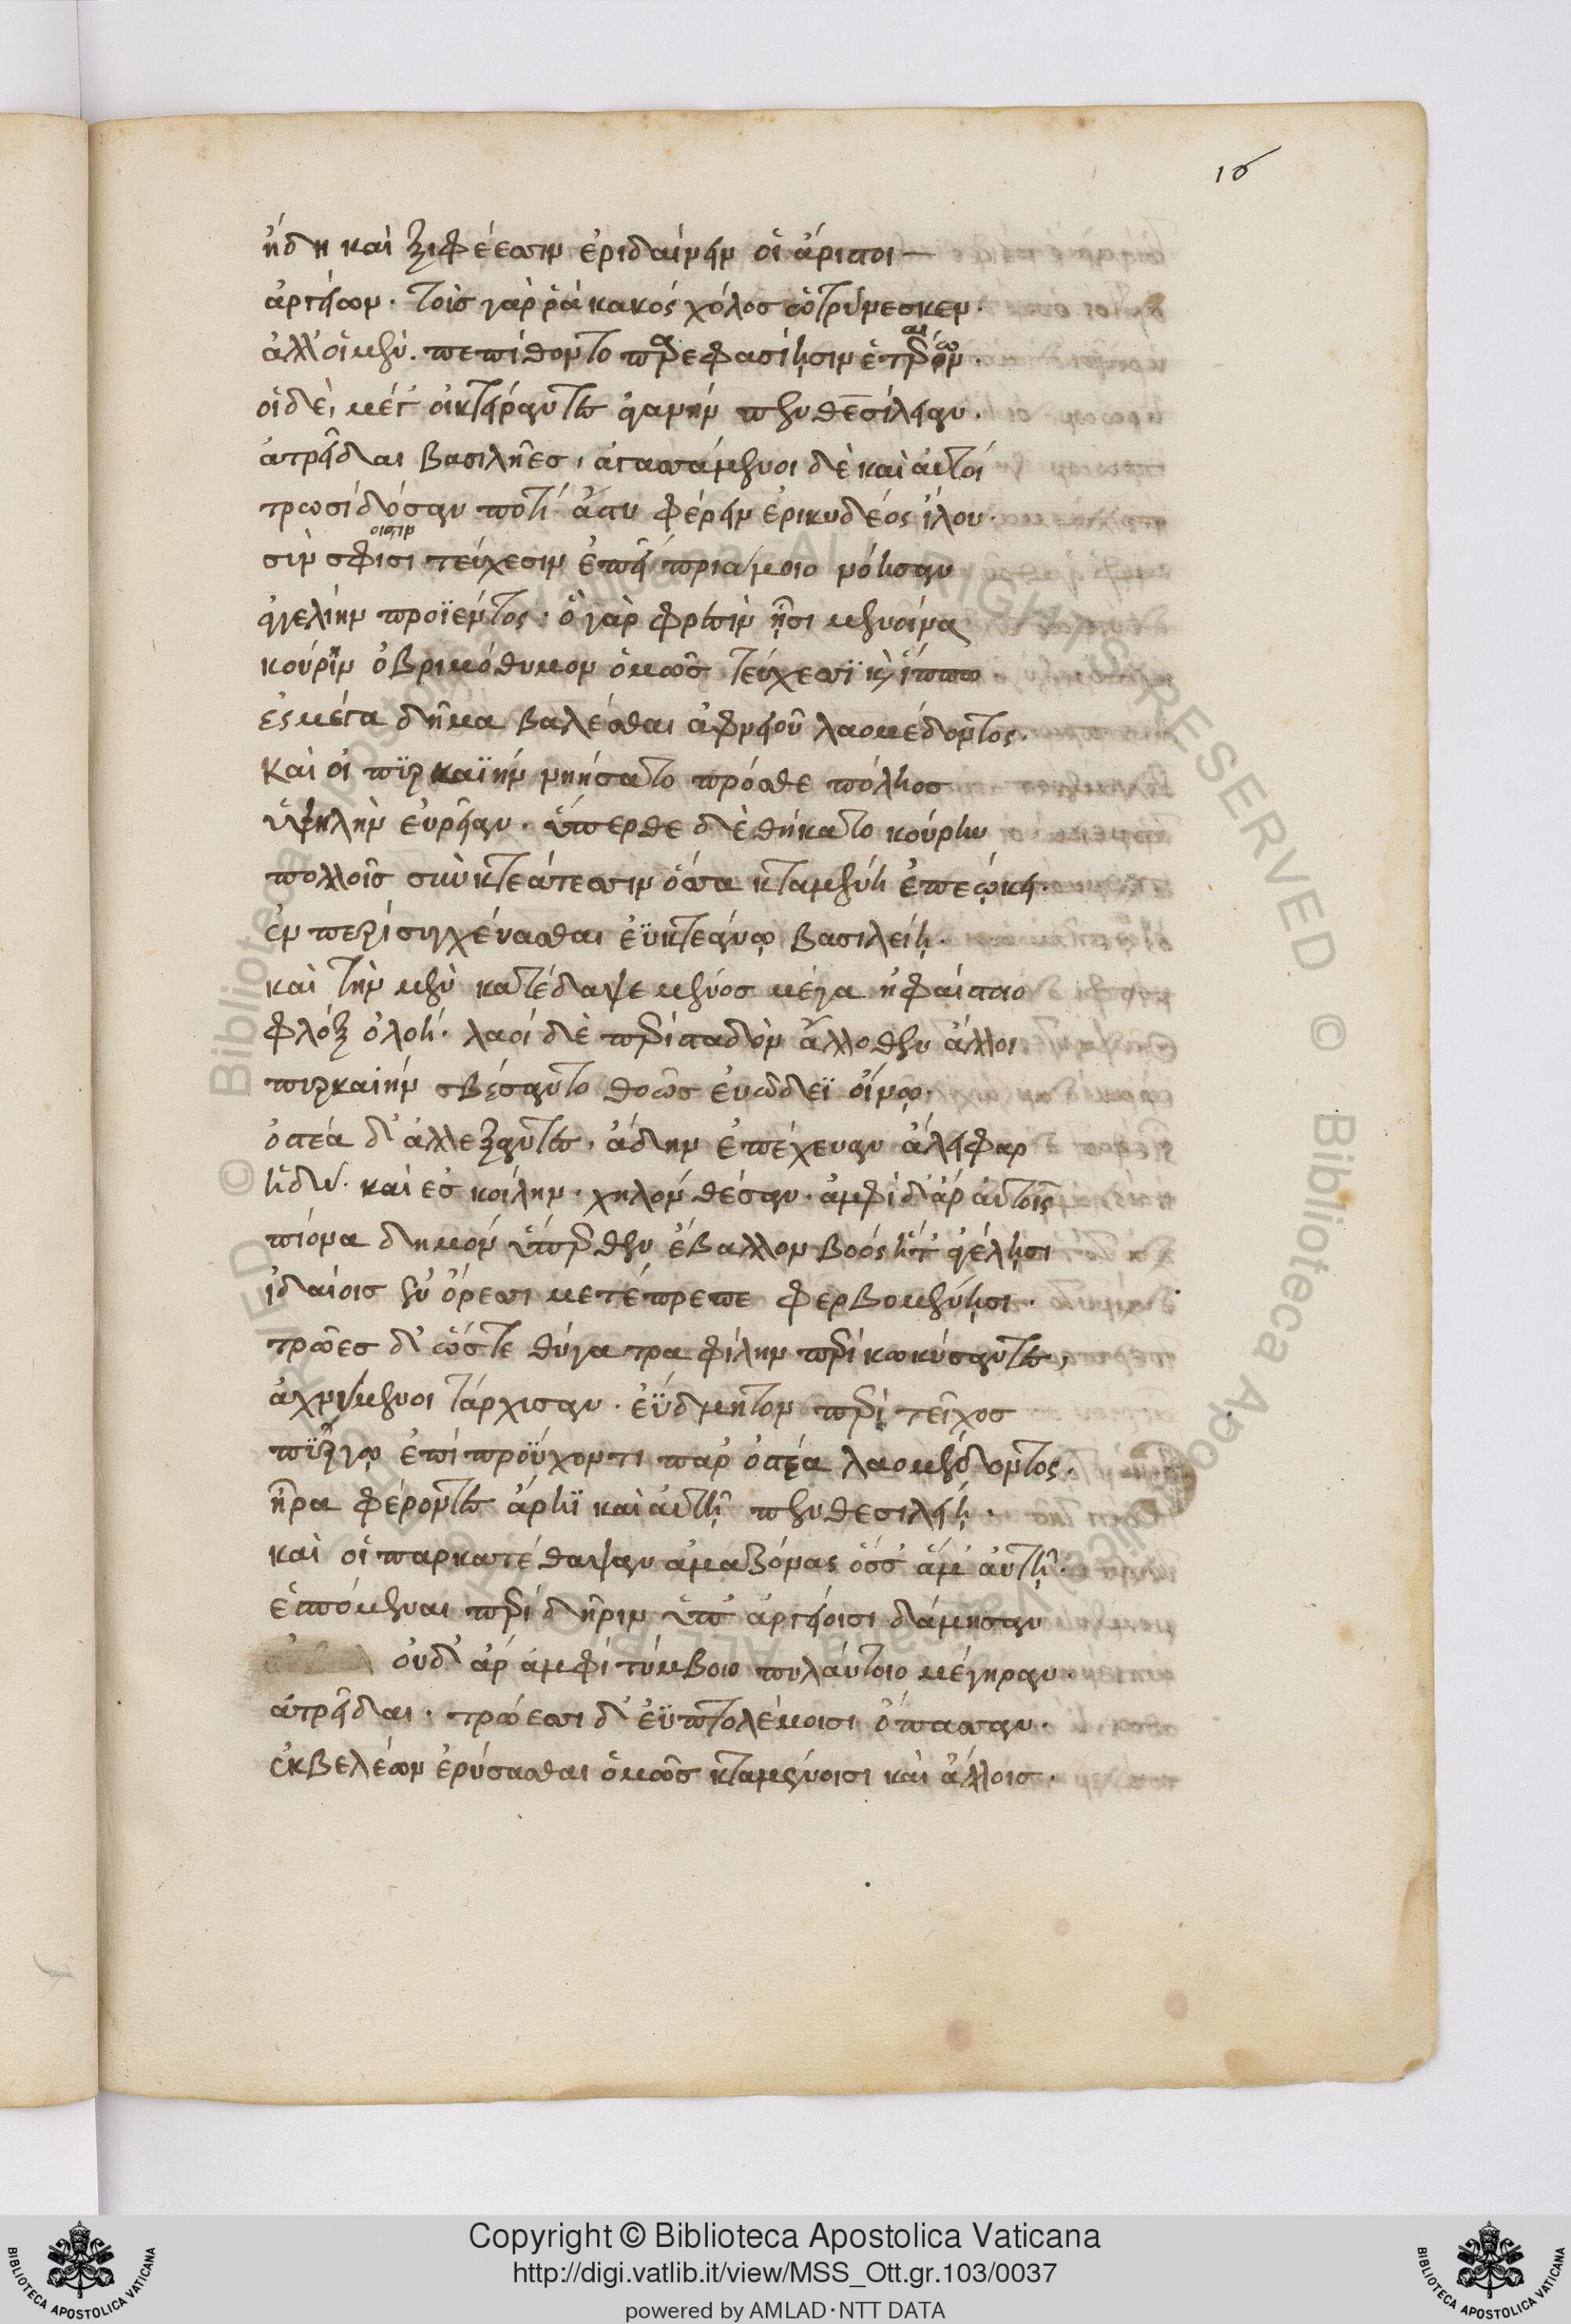 ἤδη καὶ ξιφέεσσιν ἐριδαίνειν οἱ ἄριστοι —
ἀργείων· τοὶς γὰρ ῥὰ κακός χόλος ὠτρύνεσκεν·
ἀλλ' οἱ μὲν. πεπίθοντο παρεφασίησιν ἑτάρων.
οἱ δὲ, μέγ' οἰκτείραντες ἀγαυὴν πενθεσίλειαν.
ἀτρεῖδαι βασιλῆες, ἀγασσάμενοι δὲ καὶ αὐτοί
τρωσὶ δόσαν ποτὶ ἄστυ φέρειν ἐρικυδέος ἴλου.
σὺν σφισι τεύχεσιν ἐπεὶ πριάμοιο νόησαν
οισιν
ἀγγελίην προϊέντος· ὁ γὰρ φρεσὶν ἧσι μενοίνα
κούρην ὀβριμόθυμον ὁμῶς τεύχεσσϊ καὶ ἵππω
ἐς μέγα σῆμα βαλέσθαι ἀφνειοῦ λαομέδοντος.
καὶ οἱ πϋρκαϊὴν νηήσατο πρόσθε πόληος
ὑψηλὴν εὐρεῖαν. ὕπερθε δὲ θήκατο κούρην
πολλοῖς σὺν κτεάτεσσιν ὅσσα κταμένη ἐπεώκει.
ἐν περὶ συγχένασθαι ἐϋκτεάνῳ βασιλείῃ.
καὶ τὴν μὲν κατέδαψε μένος μέγα ἡφαίστοιο
φλόξ ὀλοή. λαοί δὲ περὶσταδὸν ἄλλοθεν ἄλλοι
πυρκαϊὴν σβέσαντο θοῶς ἐυώδεϊ οἴνῳ.
ὀστέα δ' ἀλλεξαντες, ἄδην ἐπέχευαν ἄλειφαρ
ἡδὺ. καὶ ἐς κοίλην. χηλὸν θέσαν. ἀμφὶ δ' ἄρ αὐτοῖς
πίονα δημὸν ὕπερθεν ἔβαλλον βοός ἥτ' ἀγέλησι
ἰδαίοις ἐν ὄρεσσι μετέπρεπε φερβομένῃσι.
τρῶες δ' ὥστε θύγατρα φίλην περὶ κωκύσαντες,
ἀχνύμενοι τάρχισαν. ἐΰδμητον περὶ τεῖχος
πϋργῳ ἐπὶ προὔχοντι παρ' ὀστέα λαομέδοντος.
ἦρα φέροντες ἄρηϊ καὶ αὐτῇ πενθεσιλείῃ.
καὶ οἱ παρκατέθαψαν ἀμαζόνας ὅσσ' ἅμ' αὐτῇ.
ἑπόμεναι περὶ δῆριν ὑπ' ἀργείοισι δάμησαν
οὐδ' ἄρ ἀμφὶ τύμβοιο πυλαύτοιο μέγηραν.
ἀτρεῖδαι. τρώεσσι δ' ἐϋπτολέμοισι ὄπασσαν.
ἐκ βελέων ἐρύσασθαι ὁμῶς κταμένοισι καὶ ἄλλοις.
Copyright © Biblioteca Apostolica Vaticana
http://digi.vatlib.it/view/MSS_Ott.gr.103/0037
powered by AMLAD·NTT DATA